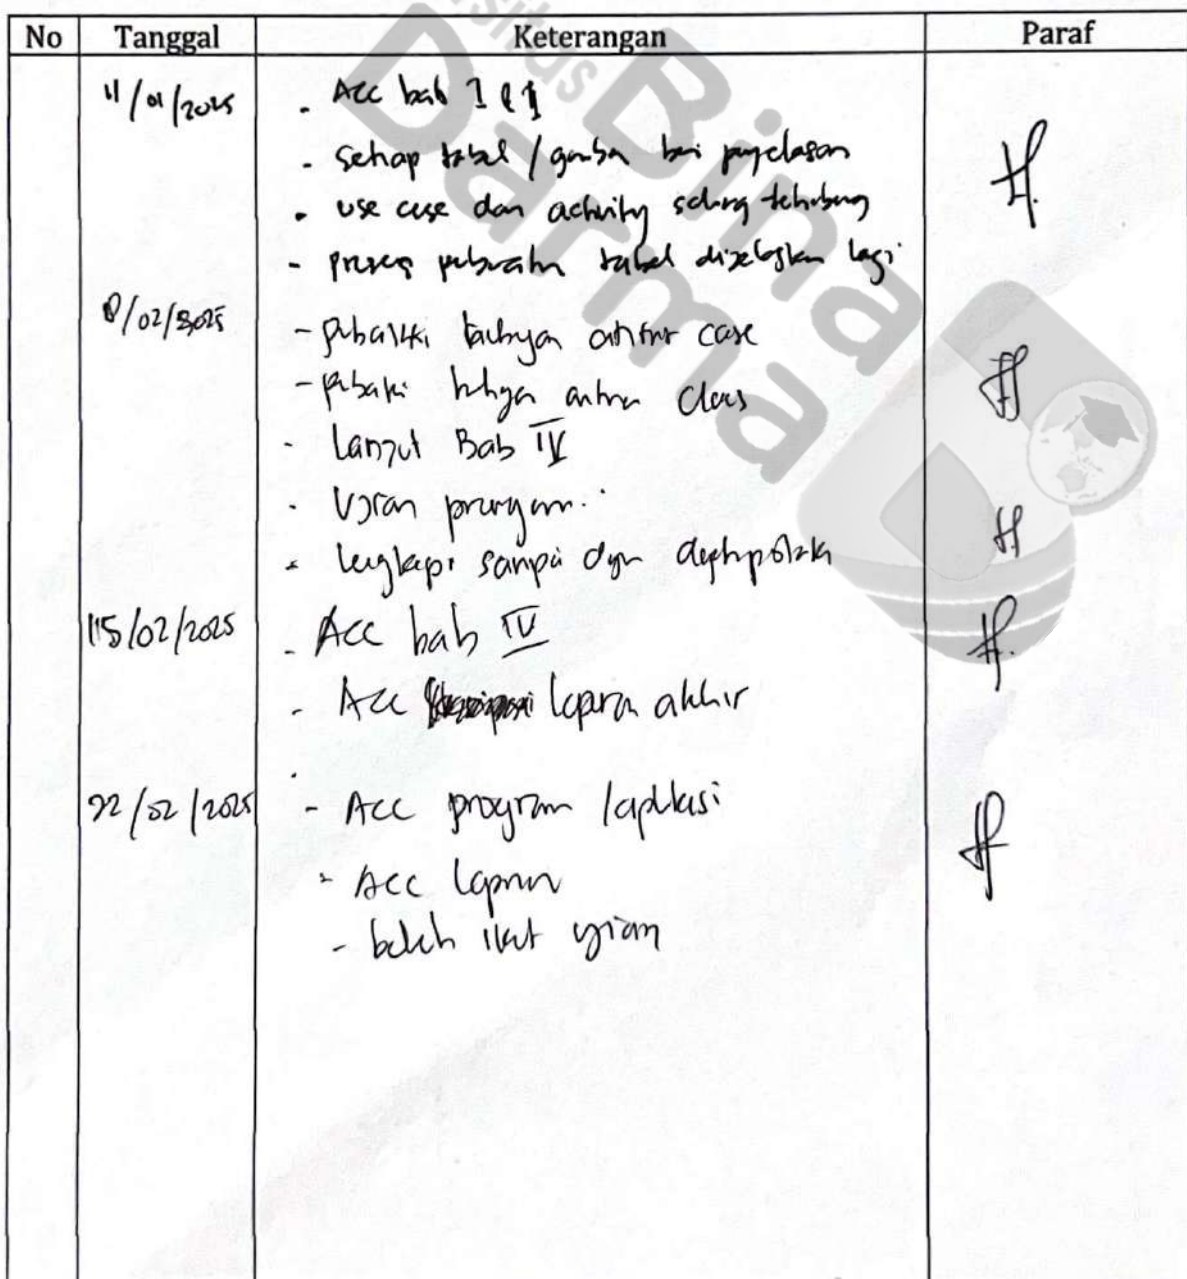 No Tanggal Keterangan Paraf
11/01/2025 - Acc bab I
- setiap tabel / gambar beri penjelasan
- use case dan activity saling terhubung
- proses pembuatan tabel dijelaskan lagi
8/02/2025 - perbaiki hubungan antar case
- perbaiki hubungan antar class
- Lanjut Bab IV
- Ujian program
- lengkapi sampai dgn
15/02/2025 - Acc bab IV
- Acc laporan akhir
22/02/2025 - Acc program / aplikasi
- Acc laporan
- boleh ikut ujian
sitas
Bina
Darma